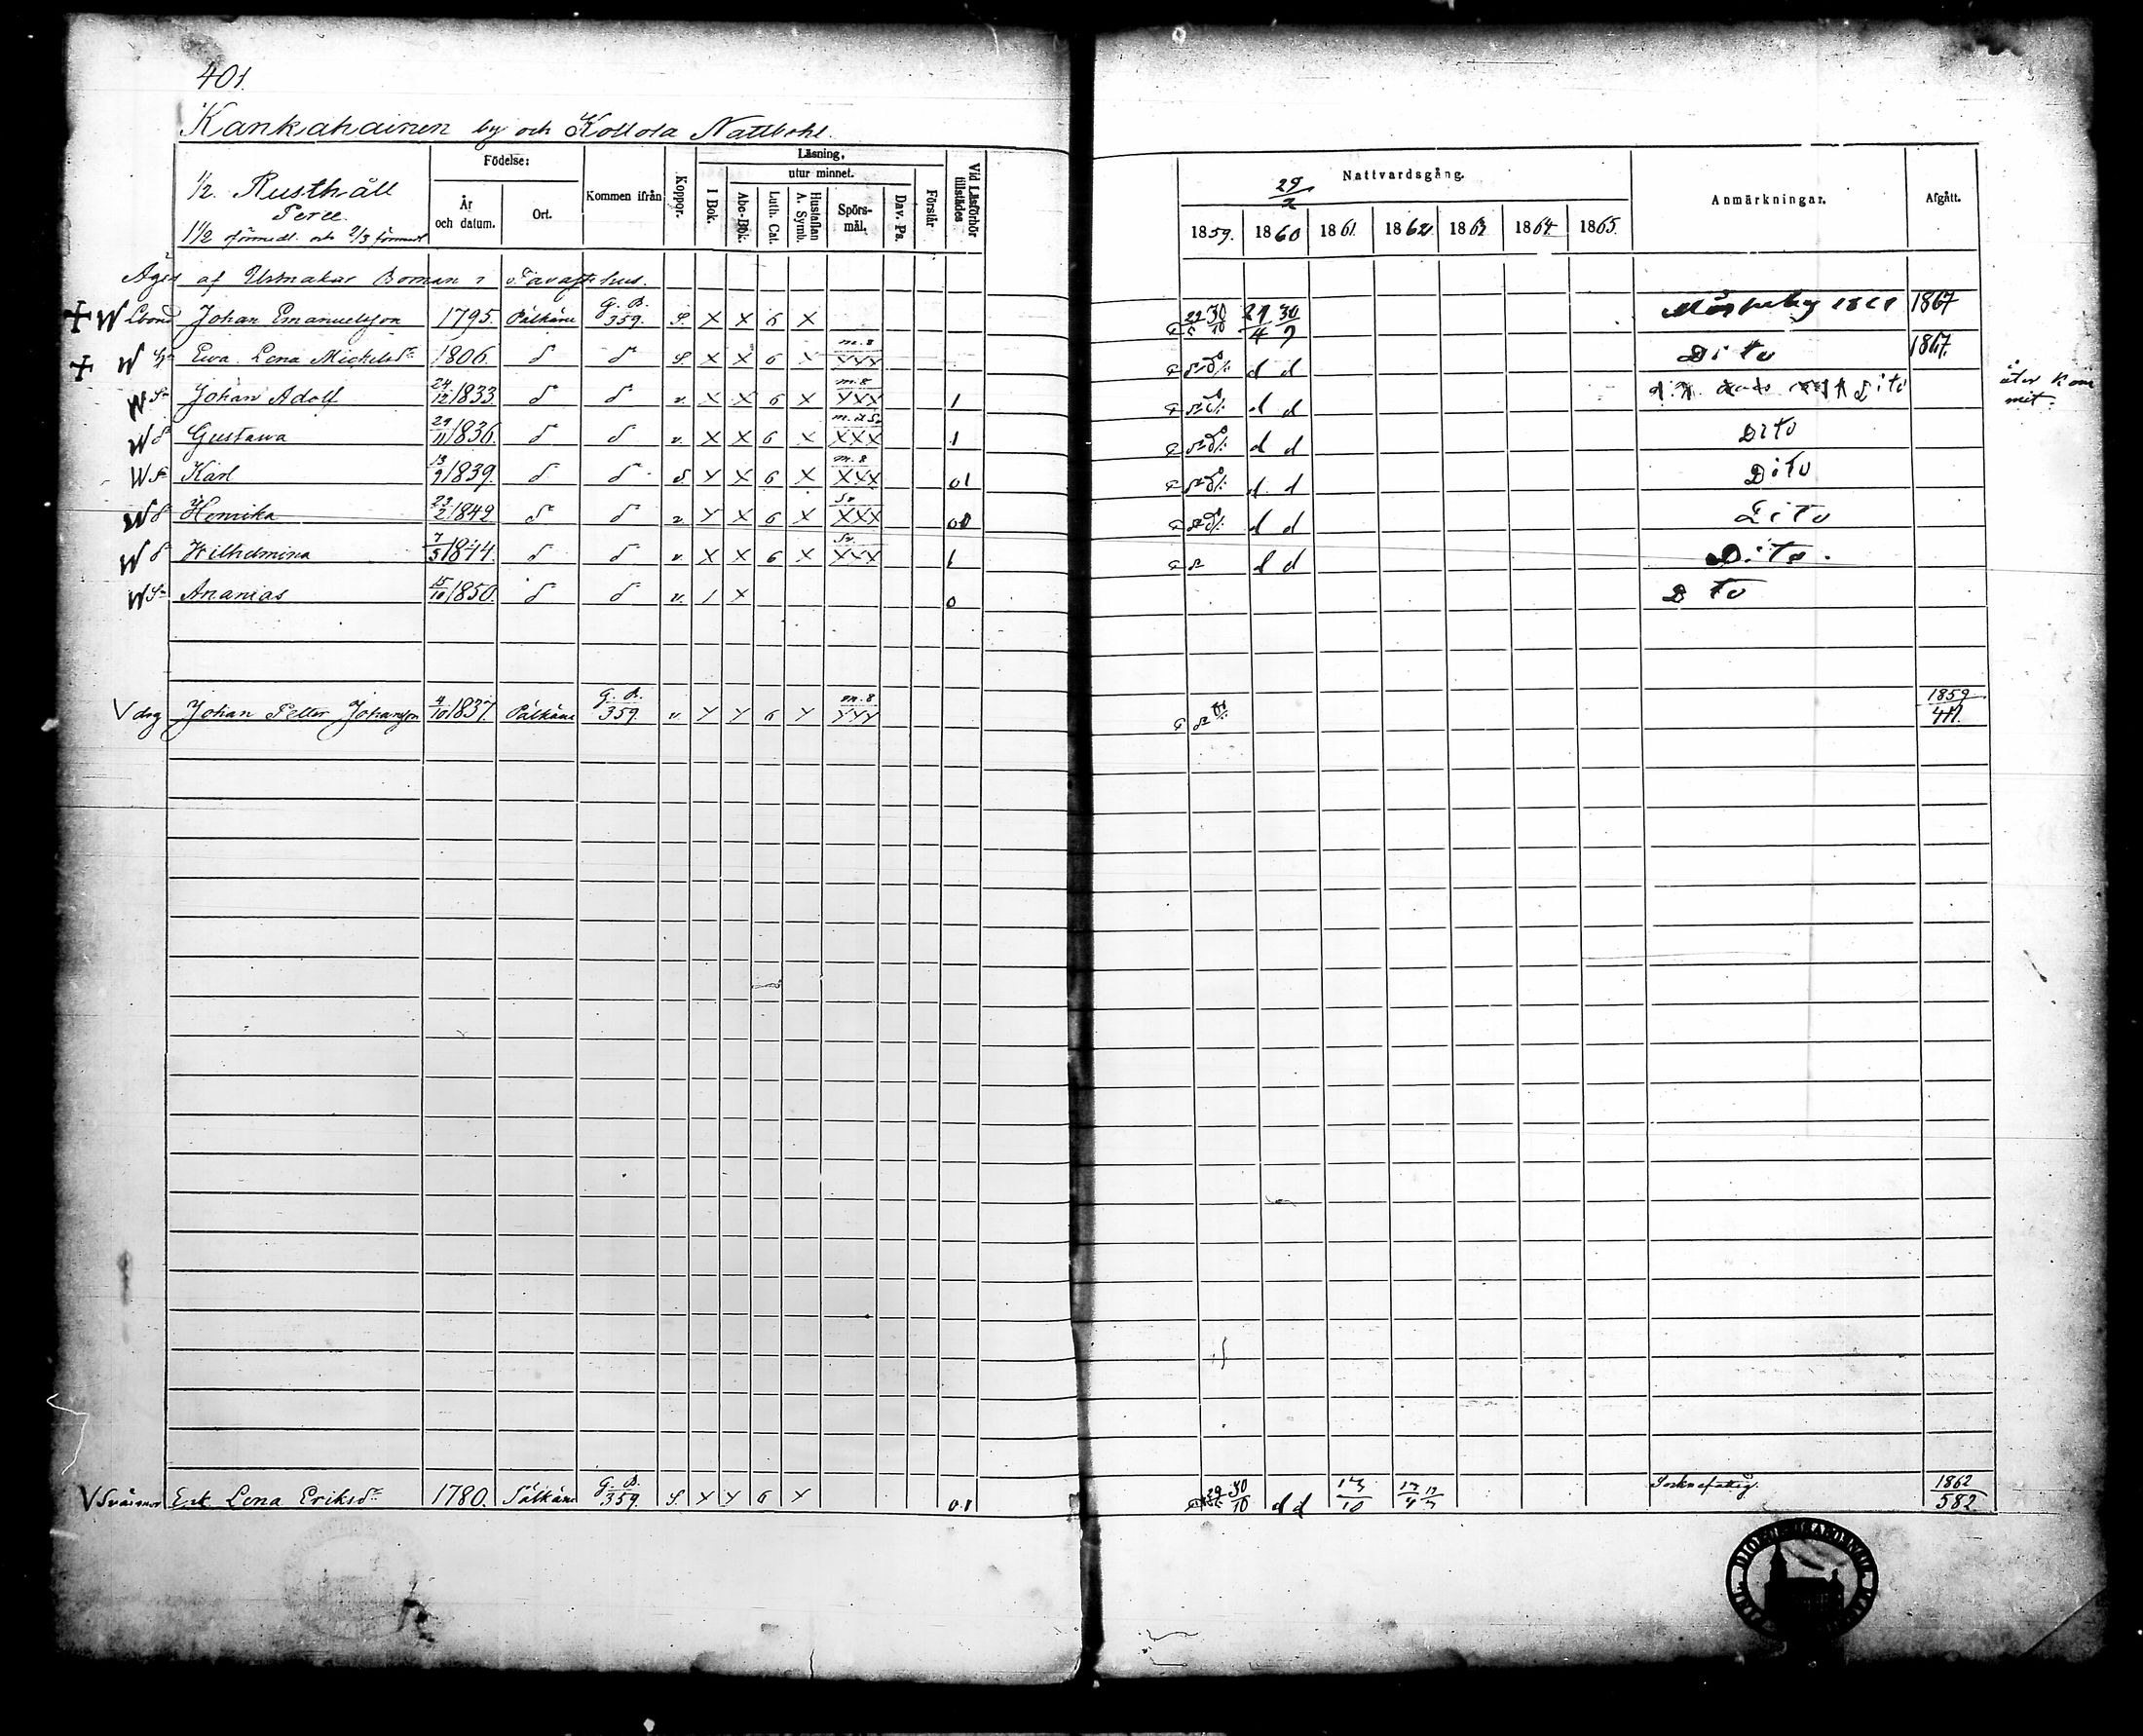 401.
Kankahainen by och Kollola Nattbohl.
1/2. Rusthåll
Födelse:
År och datum.
Ort.
Kommen ifrån
Koppor.
Läsning,
utur minnet.
I Bok.
Abc-Bok.
Luth. Cat.
Hustaflan A. Symb.
Spörs-mål.
Dav. Ps.
Förstår
Vid Läsförhör tillstädes
Nattvardsgång.
29/2
1859. 1860 1861. 1862 1863 1864. 1865.
Anmärkningar.
Afgått.
1 1/2 oförmedl. och 2/3 förmedl
Äges af Urmakar Boman i Tavastehus.
Lbond Johan Emanuelsson 1795. Pälkäne G. B. 359. S. X X 6 X 30/10 1867
Ewa Lena Michelsdr 1806. d d S. X X 6 X m. 8 XXX d d Dito 1867.
Johan Adolf 24/12 1833 d d v. X X 6 X m. 8 XXX 1 d d Dito åter kom mit.
d Gustawa 29/11 1836. d d v. X X 6 X XXX 1 d d Dito
Karl 13/9 1839. d d S. Y X 6 X m. 8 XXX 01 d d Dito
d Henrika 23/2 1842 d d v. Y X 6 X Sv XXX d d Dito
d Wilhelmina 7/5 1844. d d v. X X 6 X Sv. XXX 1 d d Dito.
Ananias 15/10 1850. d d v. / X 0 Dto
V drg Johan Petter Johansson 4/10 1837. Pälkäne G. B. 359. v. Y Y 6 Y m. 8 YYY 1859
V Svärmor Enk. Lena Eriksdr 1780. Pälkäne G. B. 359. S. Y Y 6 Y 01 30/10 d d 13/10 Socknefattig. 1862/582